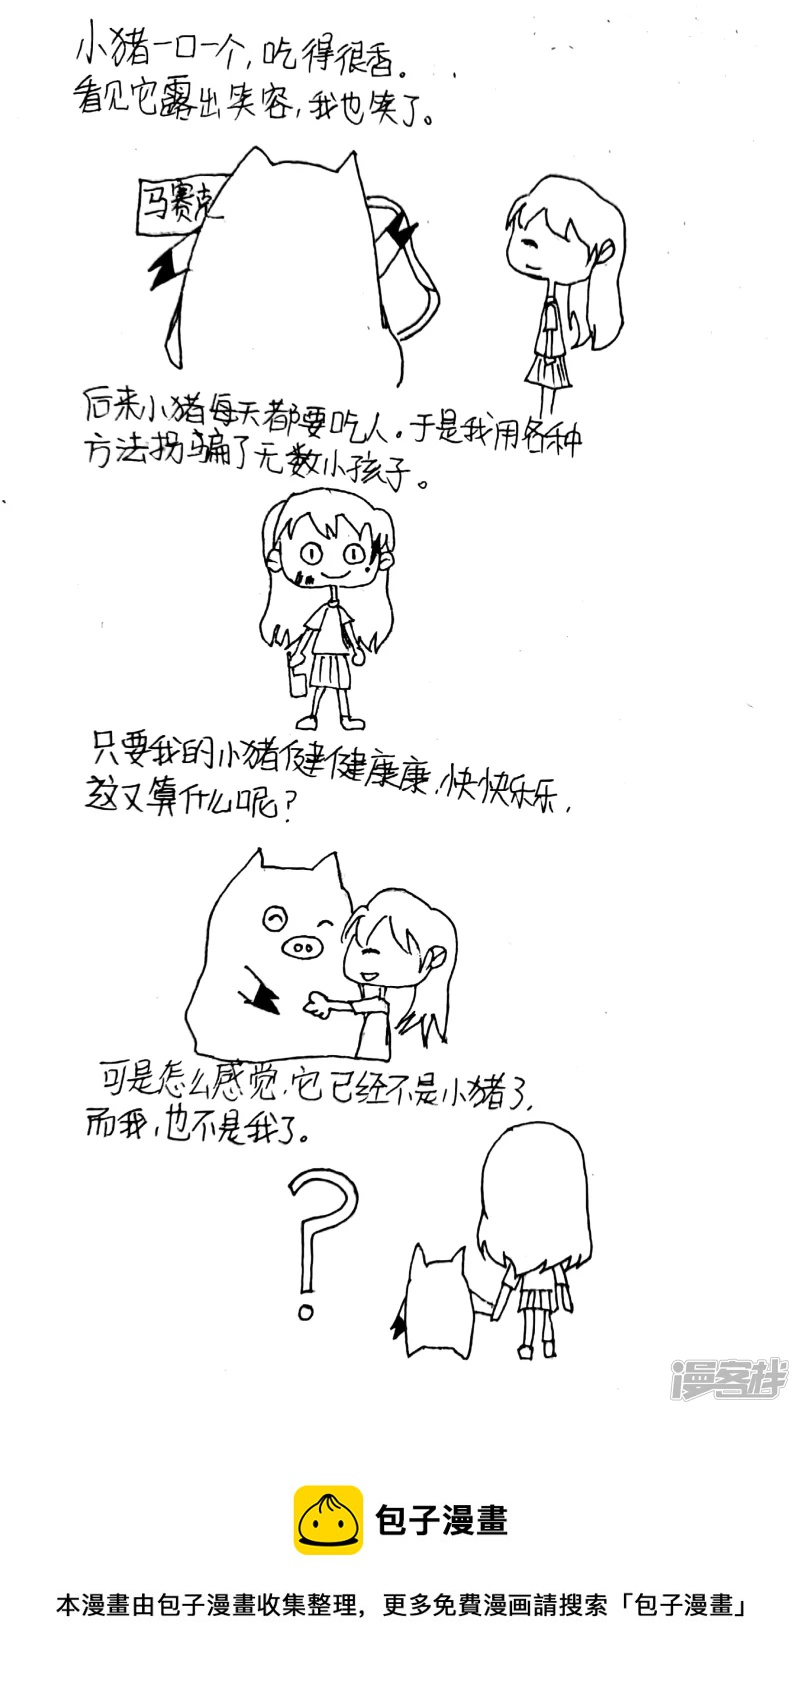 小猪一口一个，吃得很香。
看见它露出笑容，我也笑了。
马赛克
后来小猪每天都要吃人。于是我用各种
方法拐骗了无数小孩子。
只要我的小猪健健康康，快快乐乐，
这又算什么呢？
可是怎么感觉，它已经不是小猪了，
而我，也不是我了。
?
漫客栈
包子漫畫
本漫畫由包子漫畫收集整理，更多免費漫画請搜索「包子漫畫」